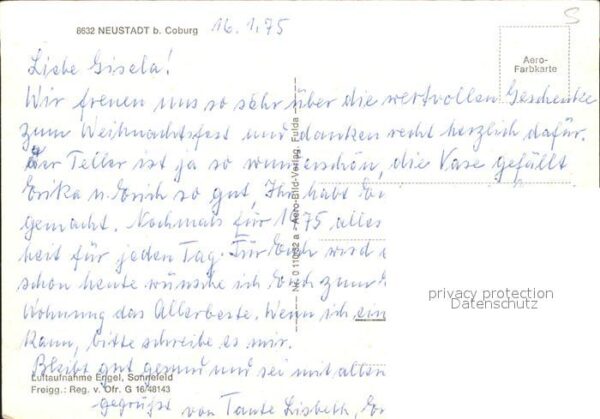 8632 NEUSTADT b. Coburg 16.1.75
S
Aero-
Farbkarte
Liebe Gisela!
Wir freuen uns so sehr über die wertvollen Geschenke
zum Weihnachtsfest und danken recht herzlich dafür.
Der Teller ist ja so wunderschön, die Vase gefällt
Erika u. Erich so gut, Ihr habt
gemacht. Nochmals für 1975 alles
heit für jeden Tag. Für Euch wird
schon heute wünsche ich Euch zum
Wohnung das Allerbeste. Wenn ich ein
kann, bitte schreibe es mir.
Bleibt gut gesund und sei mit allen
gegrüßt von Tante Lisbeth,
Nr. 0 11032 a - Aero-Bild-Verlag, Fulda
privacy protection
Datenschutz
Luftaufnahme Engel, Sonnefeld
Freigg.: Reg. v. Ofr. G 16/48143